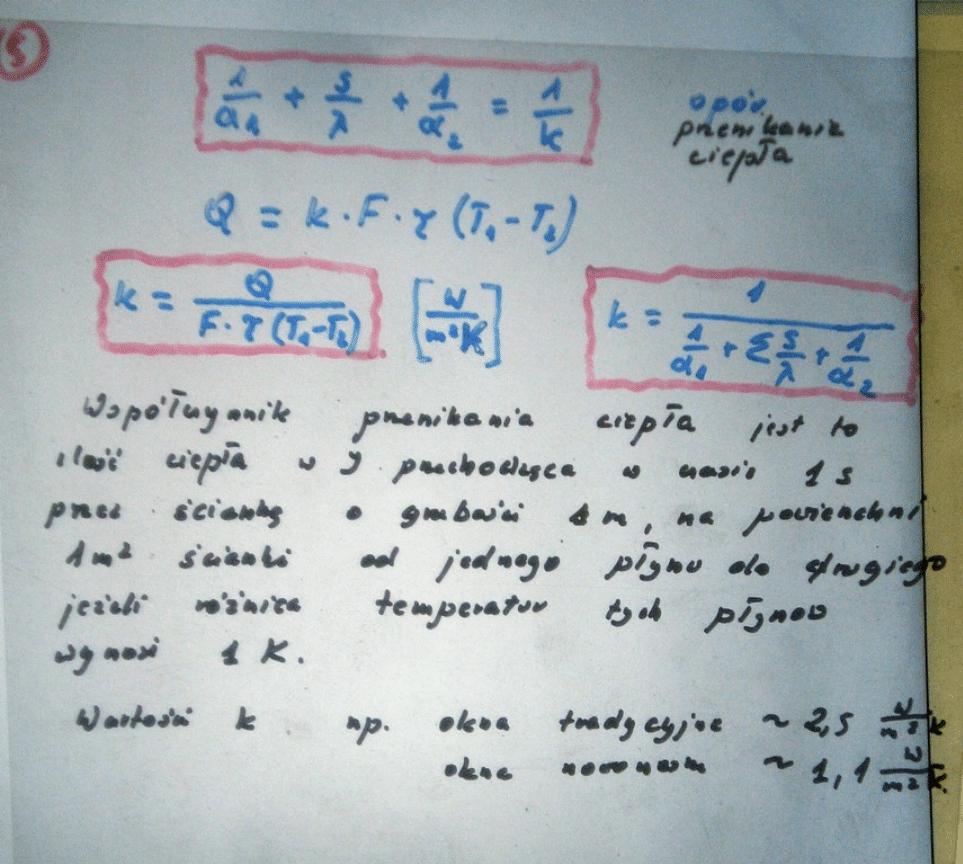 5
1/α₁ + s/λ + 1/α₂ = 1/k
opór
przenikania
ciepła
Q = k · F · τ (T₁ - T₂)
k = Q / F · τ (T₁ - T₂) [W / m² K]
k = 1 / 1/α₁ + Σ s/λ + 1/α₂
Współczynnik przenikania ciepła jest to
ilość ciepła w J przechodząca w czasie 1 s
przez ściankę o grubości 1 m, na powierzchni
1 m² ścianki od jednego płynu do drugiego
jeżeli różnica temperatur tych płynow
wynosi 1 K.
Wartości k np. okna tradycyjne ~ 2,5 W/m² K
okna ~ 1,1 W/m² K.